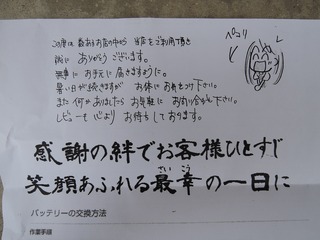 この度は数あるお店の中から 当店をご利用頂き
誠に ありがとうございます。
無事に お手元に 届きますように。
暑い日が続きますが お体に お気をつけ下さい。
また 何かありましたら お気軽に お問い合わせ下さい。
レビューも 心より お待ちしております。
ペコリ
感謝の絆でお客様ひとすじ
笑顔あふれる最幸の一日に
さいこう
バッテリーの交換方法
作業手順